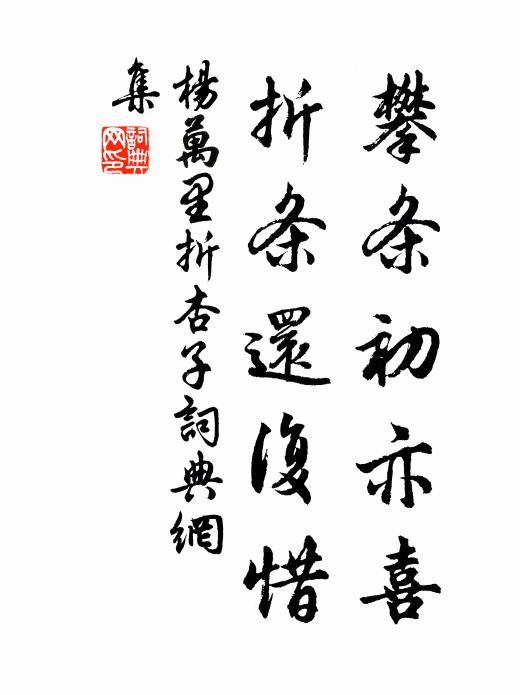 攀条初亦喜
折条還復惜
楊萬里折杏子詞典網
集
詞典网印